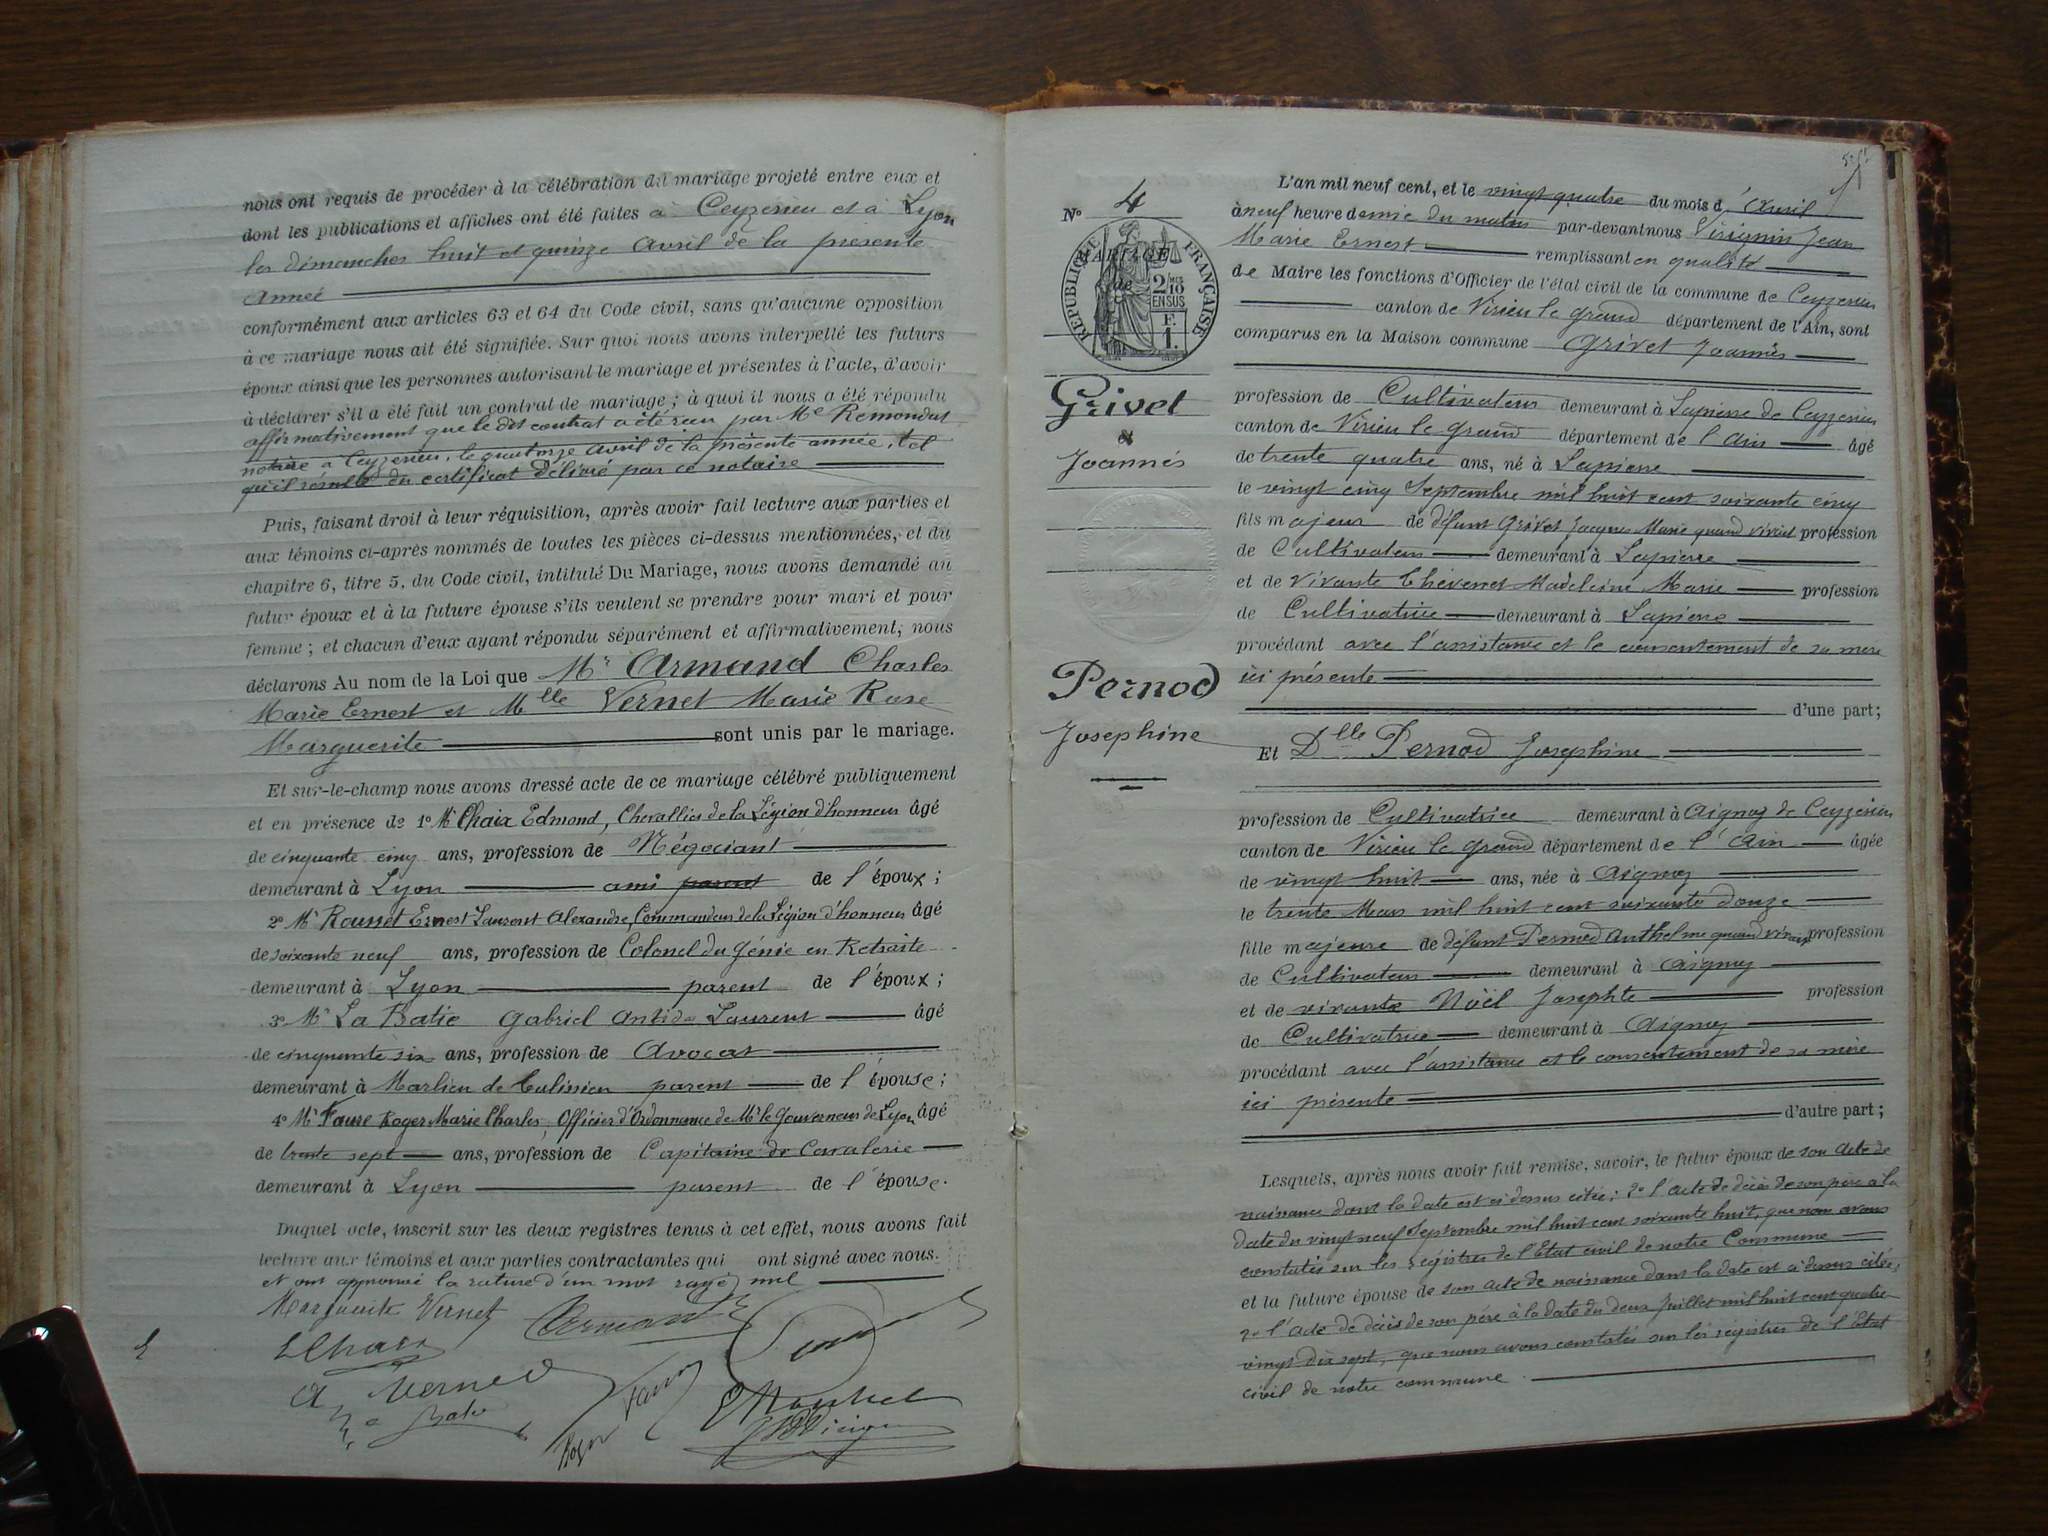 nous ont requis de procéder à la célébration du mariage projeté entre eux et
dont les publications et affiches ont été faites à Ceyzerieu et à Lyon
les dimanches huit et quinze avril de la présente
année
conformément aux articles 63 et 64 du Code civil, sans qu'aucune opposition
à ce mariage nous ait été signifiée. Sur quoi nous avons interpellé les futurs
époux ainsi que les personnes autorisant le mariage et présentes à l'acte, d'avoir
à déclarer s'il a été fait un contrat de mariage ; à quoi il nous a été répondu
affirmativement que le dit contrat a été reçu par Me Remondat
notaire à Ceyzerieu, le quatorze avril de la présente année, tel
qu'il résulte du certificat délivré par ce notaire
Puis, faisant droit à leur réquisition, après avoir fait lecture aux parties et
aux témoins ci-après nommés de toutes les pièces ci-dessus mentionnées, et du
chapitre 6, titre 5, du Code civil, intitulé Du Mariage, nous avons demandé au
futur époux et à la future épouse s'ils veulent se prendre pour mari et pour
femme ; et chacun d'eux ayant répondu séparément et affirmativement, nous
déclarons Au nom de la Loi que Mr Armand Charles
Marie Ernest et Mlle Vernet Marie Rose
Marguerite sont unis par le mariage.
Et sur-le-champ nous avons dressé acte de ce mariage célébré publiquement
et en présence de 1o Mr Chaix Edmond, Chevallier de la Légion d'honneur âgé
de cinquante cinq ans, profession de Négociant
demeurant à Lyon ami parent de l'époux ;
2o Mr Rousset Ernest Laurent Alexandre, Commandeur de la Légion d'honneur âgé
de soixante neuf ans, profession de Colonel du Génie en Retraite
demeurant à Lyon parent de l'époux ;
3o Mr La Batie Gabriel Antide Laurent âgé
de cinquante six ans, profession de Avocat
demeurant à Marlieu de Culissieu parent de l'épouse ;
4o Mr Faure Roger Marie Charles, Officier d'Ordonnance de Mr le Gouverneur de Lyon âgé
de trente sept ans, profession de Capitaine de Cavalerie
demeurant à Lyon parent de l'épouse.
Duquel acte, inscrit sur les deux registres tenus à cet effet, nous avons fait
lecture aux témoins et aux parties contractantes qui ont signé avec nous.
et ont approuvé la rature d'un mot rayé nul
Marguerite Vernet Armand
EChaix
A Vernet
Roger Faure
No 4
RÉPUBLIQUE FRANÇAISE
MARIAGE
de
2/10
EN SUS
F.
1.
Grivet
Joannès
&
Pernod
Josephine
L'an mil neuf cent, et le vingt quatre du mois d'Avril
à neuf heure demie du matin par-devant nous Virignin Jean
Marie Ernest remplissant en qualité
de Maire les fonctions d'Officier de l'état civil de la commune de Ceyzerieu
canton de Virieu le Grand département de l'Ain, sont
comparus en la Maison commune Grivet Joannès
profession de Cultivateur demeurant à Lapierre de Ceyzerieu
canton de Virieu le Grand département de l'Ain âgé
de trente quatre ans, né à Lapierre
le vingt cinq Septembre mil huit cent soixante cinq
fils majeur de défunt Grivet Jacques Marie quand vivait profession
de Cultivateur demeurant à Lapierre
et de vivante Thévenet Madeleine Marie profession
de Cultivatrice demeurant à Lapierre
procédant avec l'assistance et le consentement de sa mère
ici présente
d'une part ;
Et Dlle Pernod Josephine
profession de Cultivatrice demeurant à Aignoz de Ceyzerieu
canton de Virieu le Grand département de l'Ain âgée
de vingt huit ans, née à Aignoz
le trente Mars mil huit cent soixante douze
fille majeure de défunt Pernod Anthelme quand vivait profession
de Cultivateur demeurant à Aignoz
et de vivante Noël Josephte profession
de Cultivatrice demeurant à Aignoz
procédant avec l'assistance et le consentement de sa mère
ici présente
d'autre part ;
Lesquels, après nous avoir fait remise, savoir, le futur époux de son acte de
naissance dont la date est ci dessus citée ; 2o l'acte de décès de son père à la
date du vingt neuf Septembre mil huit cent soixante huit, que nous avons
constatés sur les régistres de l'État civil de notre Commune
et la future épouse de son acte de naissance dont la date est ci dessus citée,
2o l'acte de décès de son père à la date du deux Juillet mil huit cent quatre
vingt dix sept, que nous avons constatés sur les régistres de l'État
civil de notre commune.